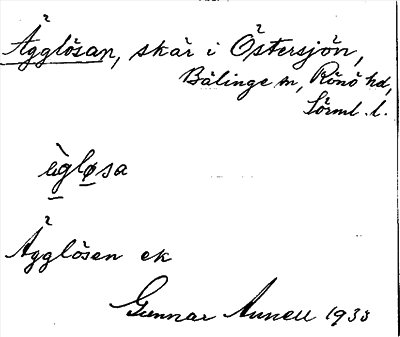 Ägglösan, skär i Östersjön,
Bälinge sn, Rönö hd,
Sörml. l.
ägløsa
Ägglösen ek
Gunnar Annell 1933